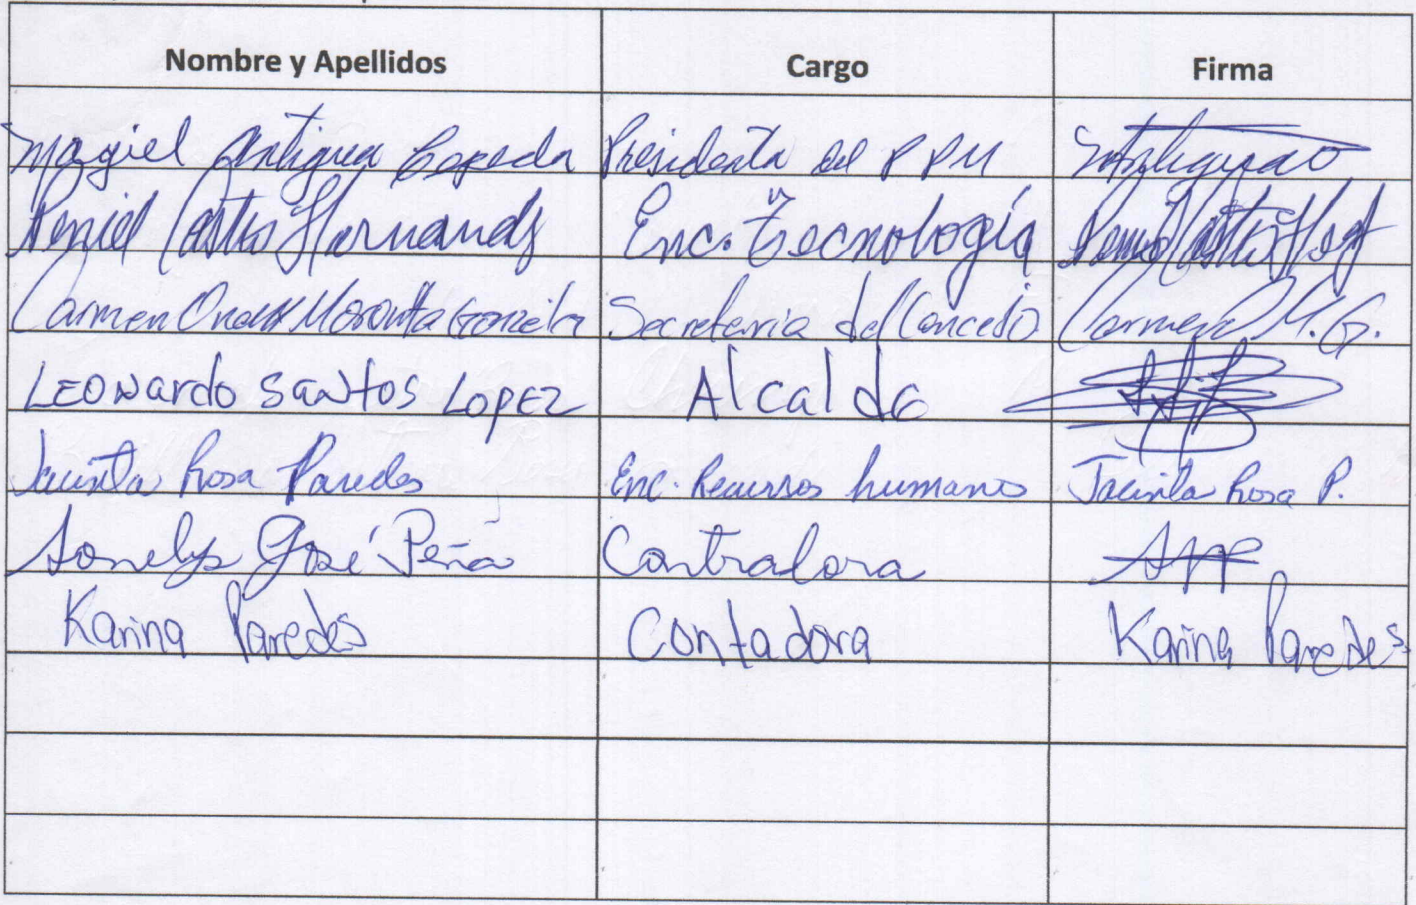 Nombre y Apellidos Cargo Firma
Magiel Antigua Cepeda Presidenta del PPM
Peniel Castro Hernandz Enc. Tecnología
Carmen Moronta Gonzalez Secretaria del Concejo Carmen M. G.
LEONardo Santos LopEz Alcalde
Jacinta Rosa Paredes Enc. Recursos humano Jacinta Rosa P.
Sonelys José Peña Contralora
Karina Paredes Contadora Karina Paredes